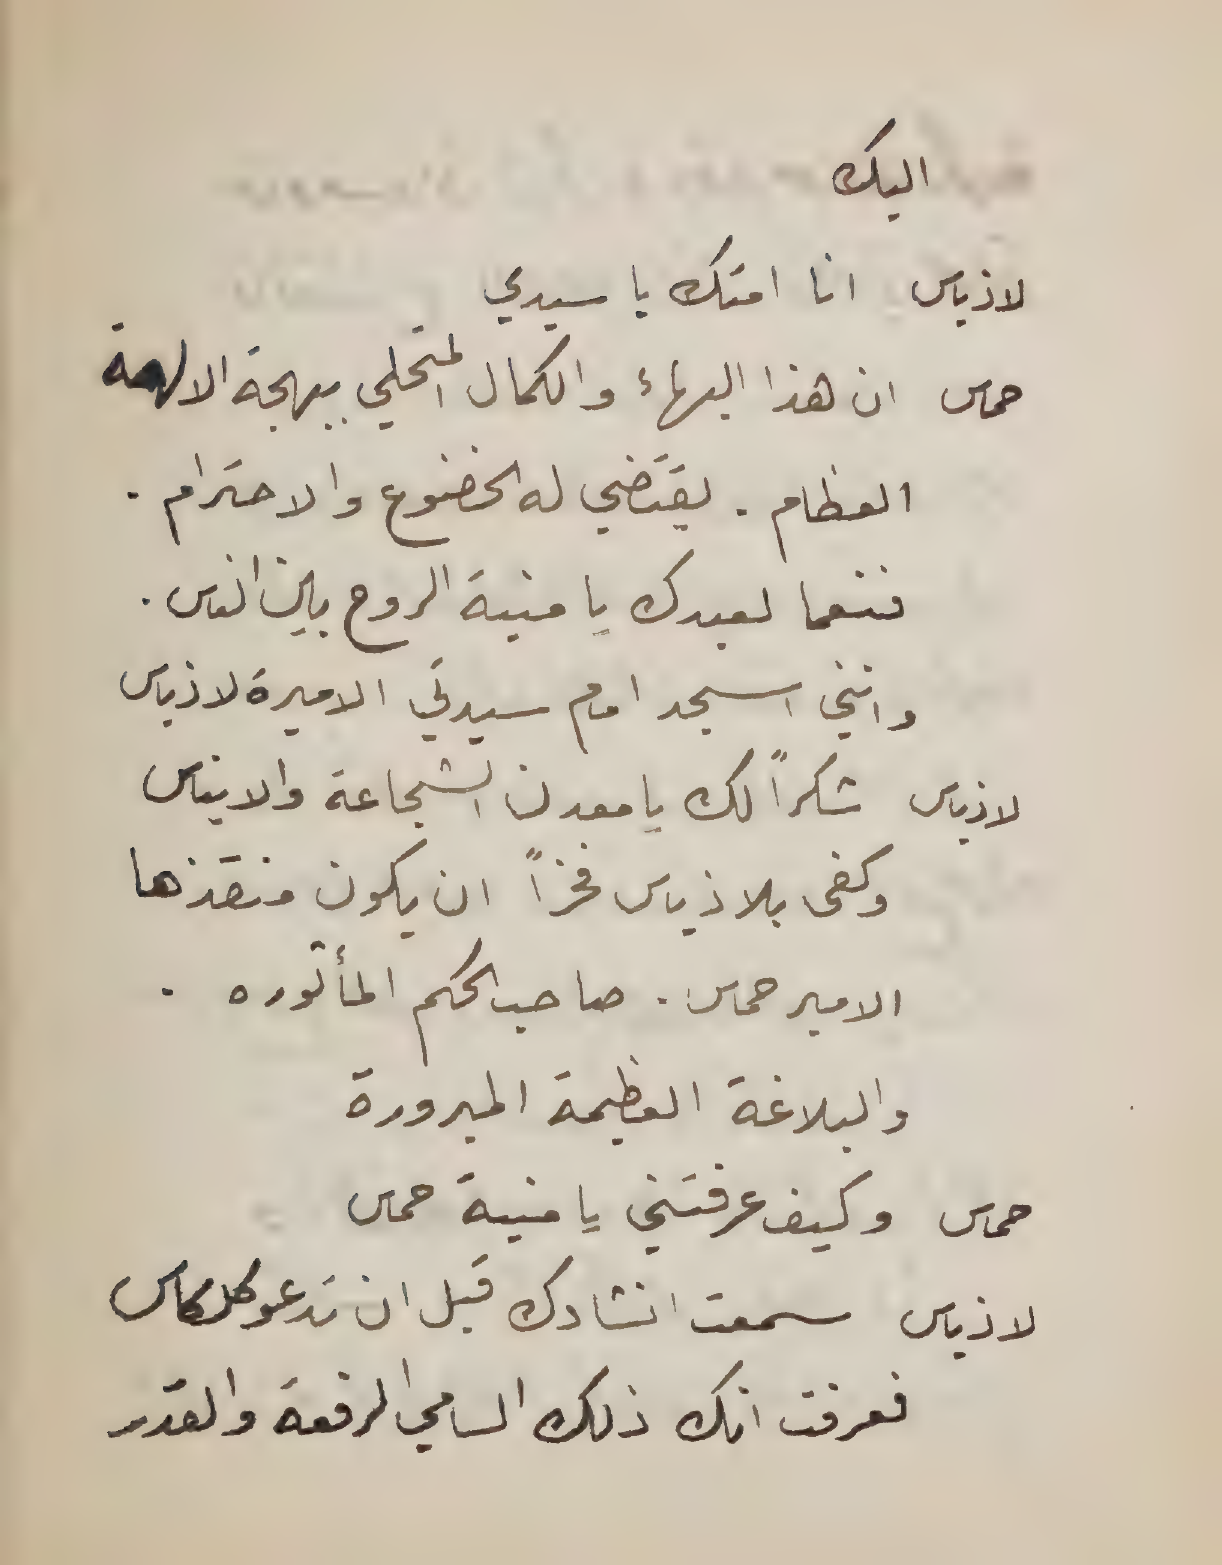 اليك
لاذياس انا امتك يا سيدي
حماس ان هذا البهاء والكمال المتحلي ببهجة الالهة
العظام . يقتضي له الخضوع والاحترام .
فنعما لعبدك يا منية الروح بين الناس .
وانني اسجد امام سيدتي الاميرة لاذياس
لاذياس شكراً لك يا معدن الشجاعة والايناس
وكفى بلاذياس فخراً ان يكون منقذها
الامير حماس . صاحب الحكم المأثوره .
والبلاغة العظيمة المبرورة
حماس وكيف عرفتني يا منية حماس
لاذياس سمعت انشادك قبل ان تدعو كلكاس
فعرفت انك ذلك السامي الرفعة والقدر